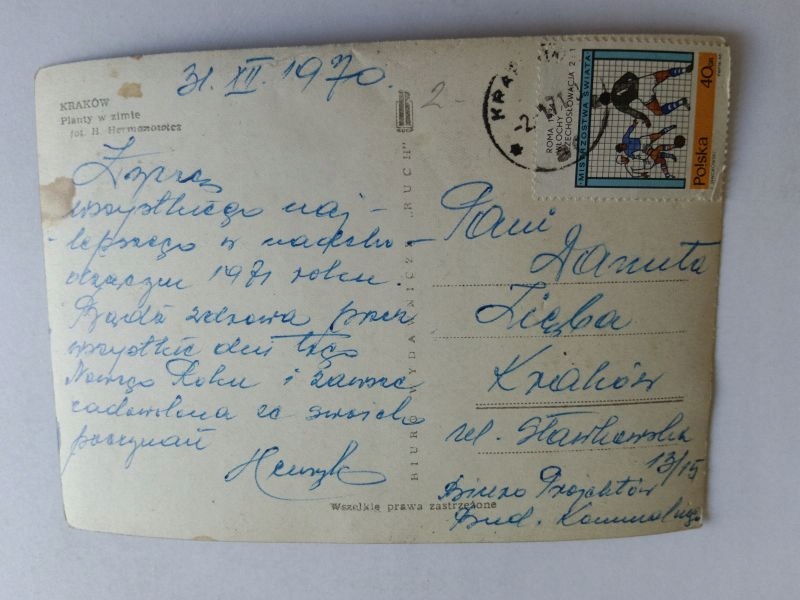 31. XII. 1970.
KRAKÓW
Planty w zimie
fot. H. Hermanowicz
Życzę
wszystkiego naj-
-lepszego w nadcho-
dzącym 1971 roku.
Bądź zdrowa przez
wszystkie dni tego
Nowego Roku i zawsze
zadowolona ze swoich
poczynań
Henryk
BIURO WYDAWNICZE „RUCH"
Wszelkie prawa zastrzeżone
2-
KRA
-2.
ROMA 1934
WŁOCHY
CZECHOSŁOWACJA 2:1
MISTRZOSTWA ŚWIATA
Polska
40 GR
Pani
Danuta
Zięba
Kraków
ul. Sławkowska
13/15
Biuro Projektów
Bud. Komunalnego